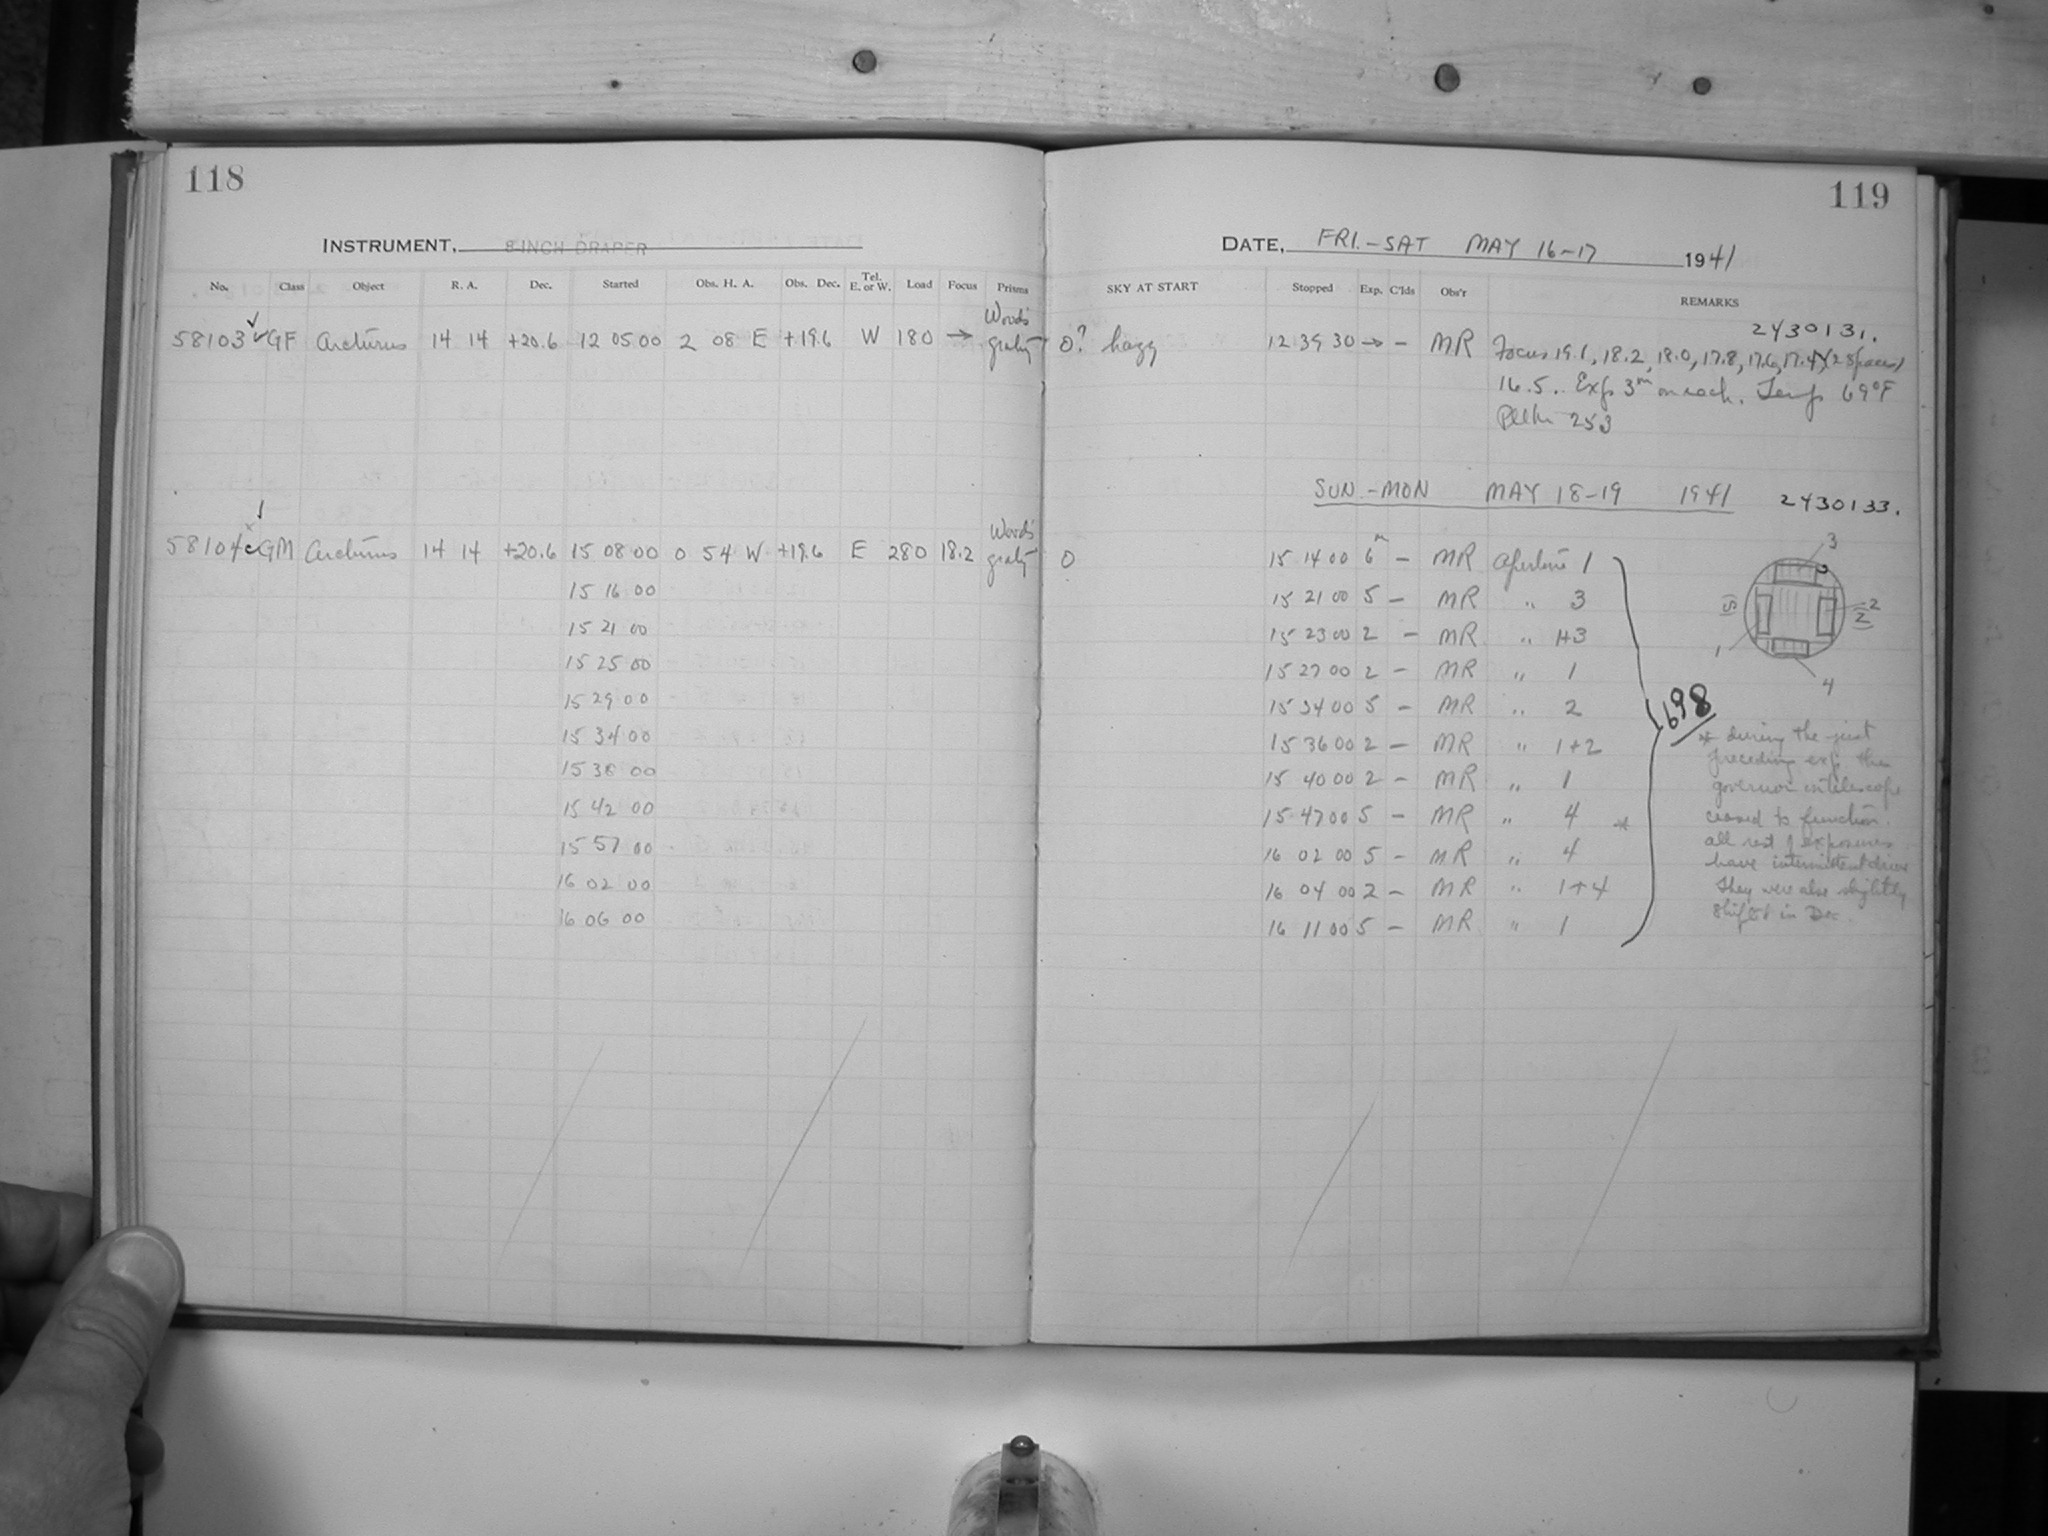 118
119
INSTRUMENT, 8 INCH DRAPER
DATE, FRI. - SAT MAY 16-17 1941
No. Class Object R. A. Dec. Started Obs. H. A. Obs. Dec. Tel. E. or W. Load Focus Prisms
SKY AT START Stopped Exp. C'lds Obs'r REMARKS
2430131.
58103 ✓ GF Arcturus 14 14 +20.6 12 05 00 2 08 E +19.6 W 180 → Wood's 0? hazy 12 39 30 → - MR Focus 19.1, 18.2, 18.0, 17.8, 17.6, 17.4, (2 spaces)
16.5. Exp 3m on each. Temp 69°F
253
SUN - MON MAY 18-19 1941 2430133.
58104 GM Arcturus 14 14 +20.6 15 08 00 0 54 W +19.6 E 280 18.2 Wood's 0 15 14 00 6m - MR Aperture 1
15 16 00 15 21 00 5 - MR " 3
15 21 00 15 23 00 2 - MR " 1+3
15 25 00 15 27 00 2 - MR " 1
15 29 00 15 34 00 5 - MR " 2
15 34 00 15 36 00 2 - MR " 1+2
15 38 00 15 40 00 2 - MR " 1
15 42 00 15 47 00 5 - MR " 4 *
15 57 00 16 02 00 5 - MR " 4
16 02 00 16 04 00 2 - MR " 1+4
16 06 00 16 11 00 5 - MR " 1
3
(S)
2
1
4
698
* during the just
preceding exp. the
governor in telescope
ceased to function.
all rest of exposures
have intermittent drive
They were also slightly
shifted in Dec.